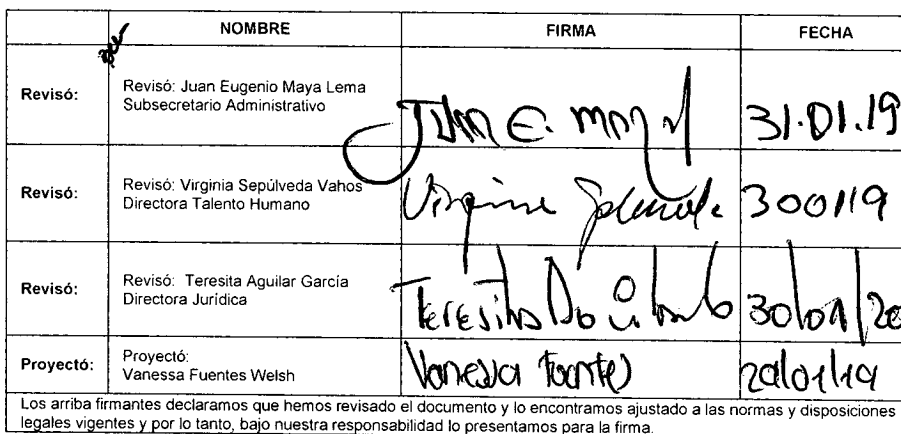 NOMBRE FIRMA FECHA
Revisó: Revisó: Juan Eugenio Maya Lema
Subsecretario Administrativo
Juan E. Maya 31.01.19
Revisó: Revisó: Virginia Sepúlveda Vahos
Directora Talento Humano
Virginia 300119
Revisó: Revisó: Teresita Aguilar García
Directora Jurídica
Teresita 30/01/20
Proyectó: Proyectó:
Vanessa Fuentes Welsh
Vanessa Fuentes
Los arriba firmantes declaramos que hemos revisado el documento y lo encontramos ajustado a las normas y disposiciones
legales vigentes y por lo tanto, bajo nuestra responsabilidad lo presentamos para la firma.